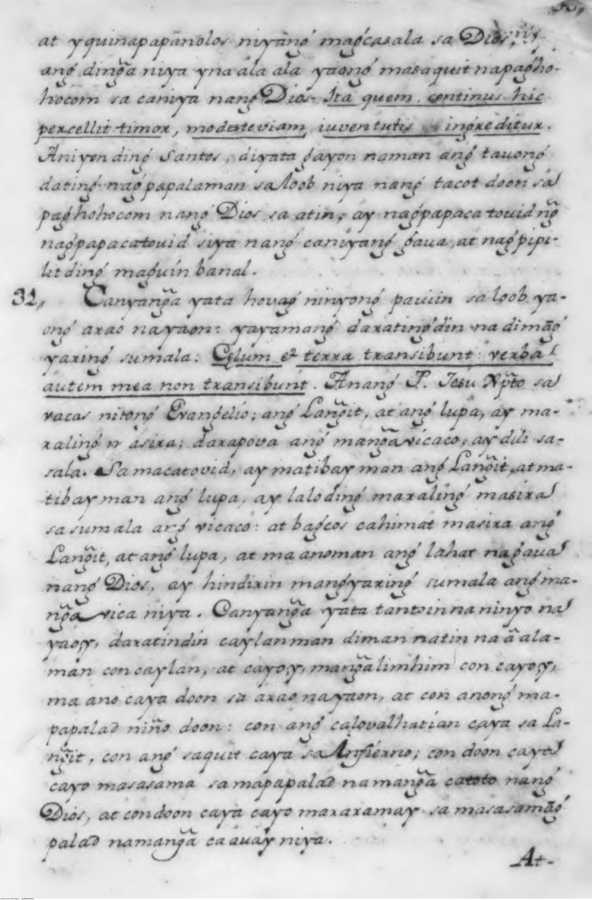 at yquinapapañolos niyang̃ mag̃casala sa Dios,
ang̃ ding̃g̃a niya yna ála ala yaong̃ masaquit na pag̃ho-
hocom sa caniya nang̃ Dios. Ita quem continus hic
percellit timor, modeste viam, iuventutis ingreditur.
Aniyon ding̃ Santos, diyata g̃ayon naman ang̃ tauong̃
dating̃ nag̃papalaman sa loob niya nang̃ tacot doon sa
pag̃hohocom nang̃ Dios sa atin, ay nag̃papaca touid ng̃
nag̃papacatouid siya nang̃ caniyang̃ g̃aua, at nag̃pipi-
lit ding̃ mag̃uin banal.
32, Canyang̃a yata houag̃ ninyong̃ pauiin sa loob ya-
ong̃ arao na yaon: yayamang̃ daratingdin na dimang̃
yaring̃ sumala. Cęlum et terra transibunt: verba
autem mea non transibunt. Anang̃ P. Iesu Xp̃to sa
vacas nitong̃ Evang̃elio; ang̃ Lang̃it, at ang̃ lupa, ay ma-
raling̃ masira; darapova ang̃ mang̃a vicaco, ay dili sa-
sala. Sa macatovid, ay matibay man ang̃ Lang̃it, at ma-
tibay man ang̃ lupa, ay lalo ding̃ maraling̃ masira
sa sumala ang̃ vicaco: at bag̃cos cahimat masira ang̃
Lang̃it, at ang̃ lupa, at ma anoman ang̃ lahat na g̃aua
nang̃ Dios, ay hindirin mang̃yaring̃ sumala ang̃ ma-
ng̃a vica niya. Canyang̃a yata tantoin na ninyo na
yaoy, daratindin caylan man diman natin na á ala-
man con caylan, at cayoy, mang̃alimhim con cayoy,
ma ano caya doon sa arao na yaon, at con anong̃ ma-
papalad niño doon: con ang̃ calovalhatian caya sa La-
ng̃it, con ang̃ saquit caya sa Infierno; con doon caya
cayo masasama sa mapapalad na mang̃a catoto nang̃
Dios, at con doon caya cayo mararamay sa masasamang̃
palad na mang̃a caauay niya.
At-